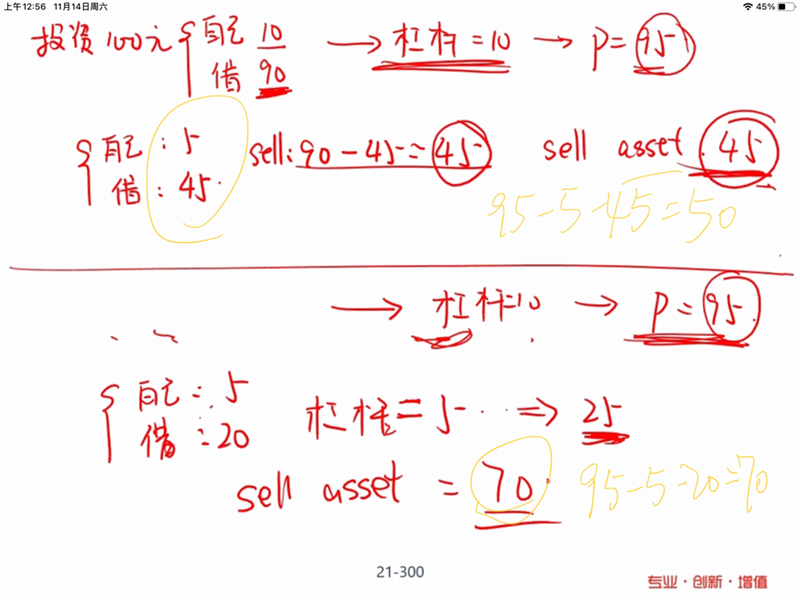 上午12:56 11月14日周六 45%
投资100元 自己 10 → 杠杆=10 → P=95
借 90
自己:5 sell:90-45=45 sell asset 45
借:45
95-5-45=50
→ 杠杆=10 → P=95
自己:5 杠杆=5 ⇒ 25
借:20
sell asset = 70 95-5-20=70
21-300
专业·创新·增值